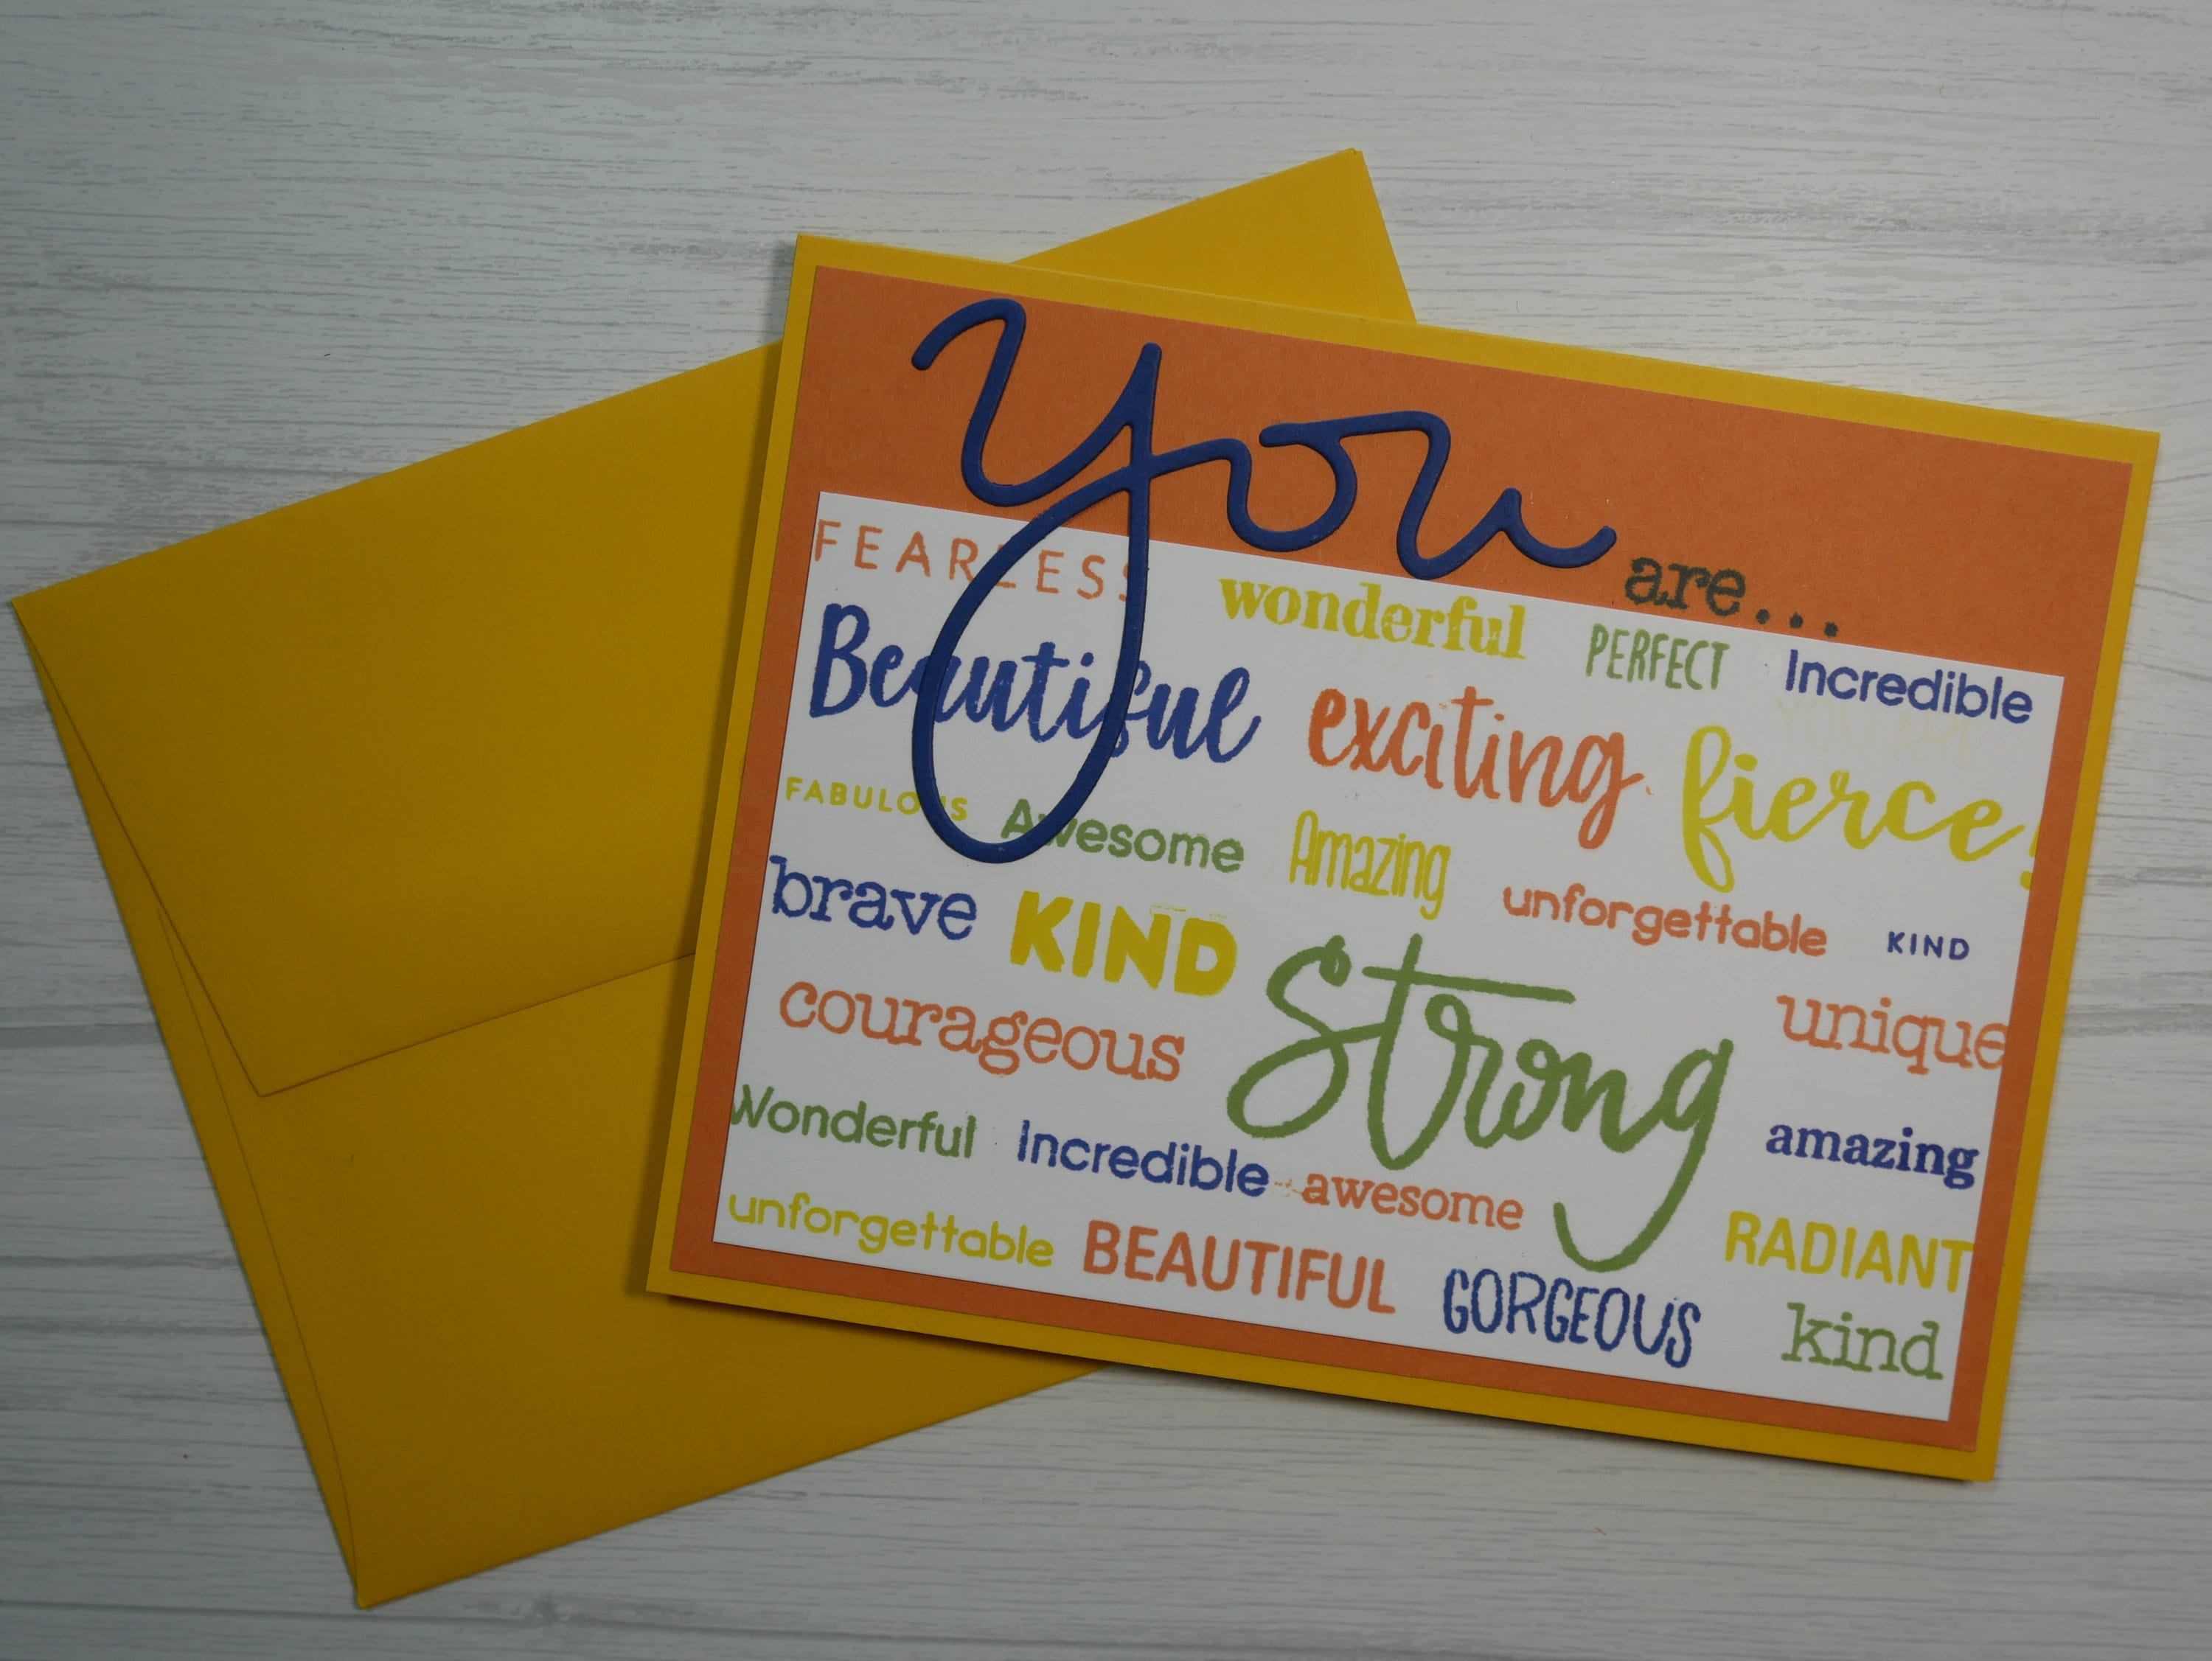 You are...
FEARLESS wonderful PERFECT Incredible
Beautiful exciting fierce!
FABULOUS Awesome Amazing unforgettable KIND
brave KIND Strong unique
courageous
Wonderful Incredible awesome amazing
unforgettable BEAUTIFUL GORGEOUS RADIANT
kind